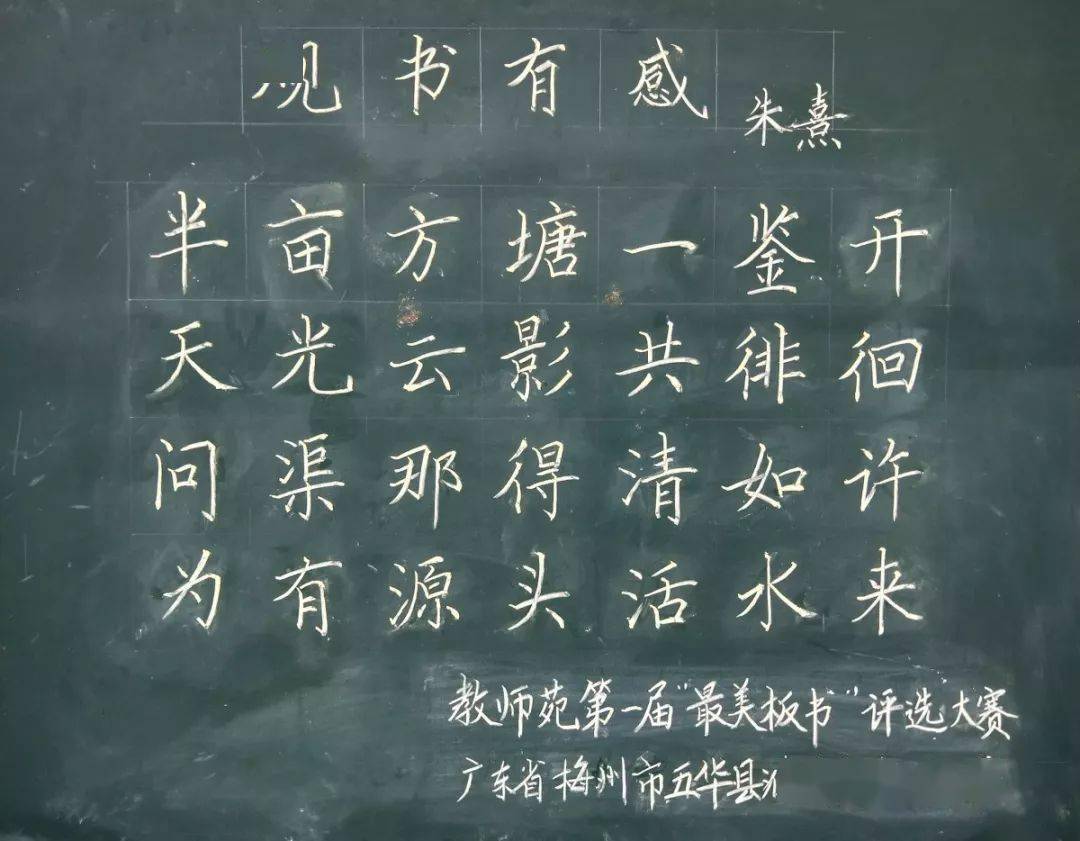 书有感
朱熹
半亩方塘一鉴开
天光云影共徘徊
问渠那得清如许
为有源头活水来
教师苑第一届“最美板书”评选大赛
广东省梅州市五华县